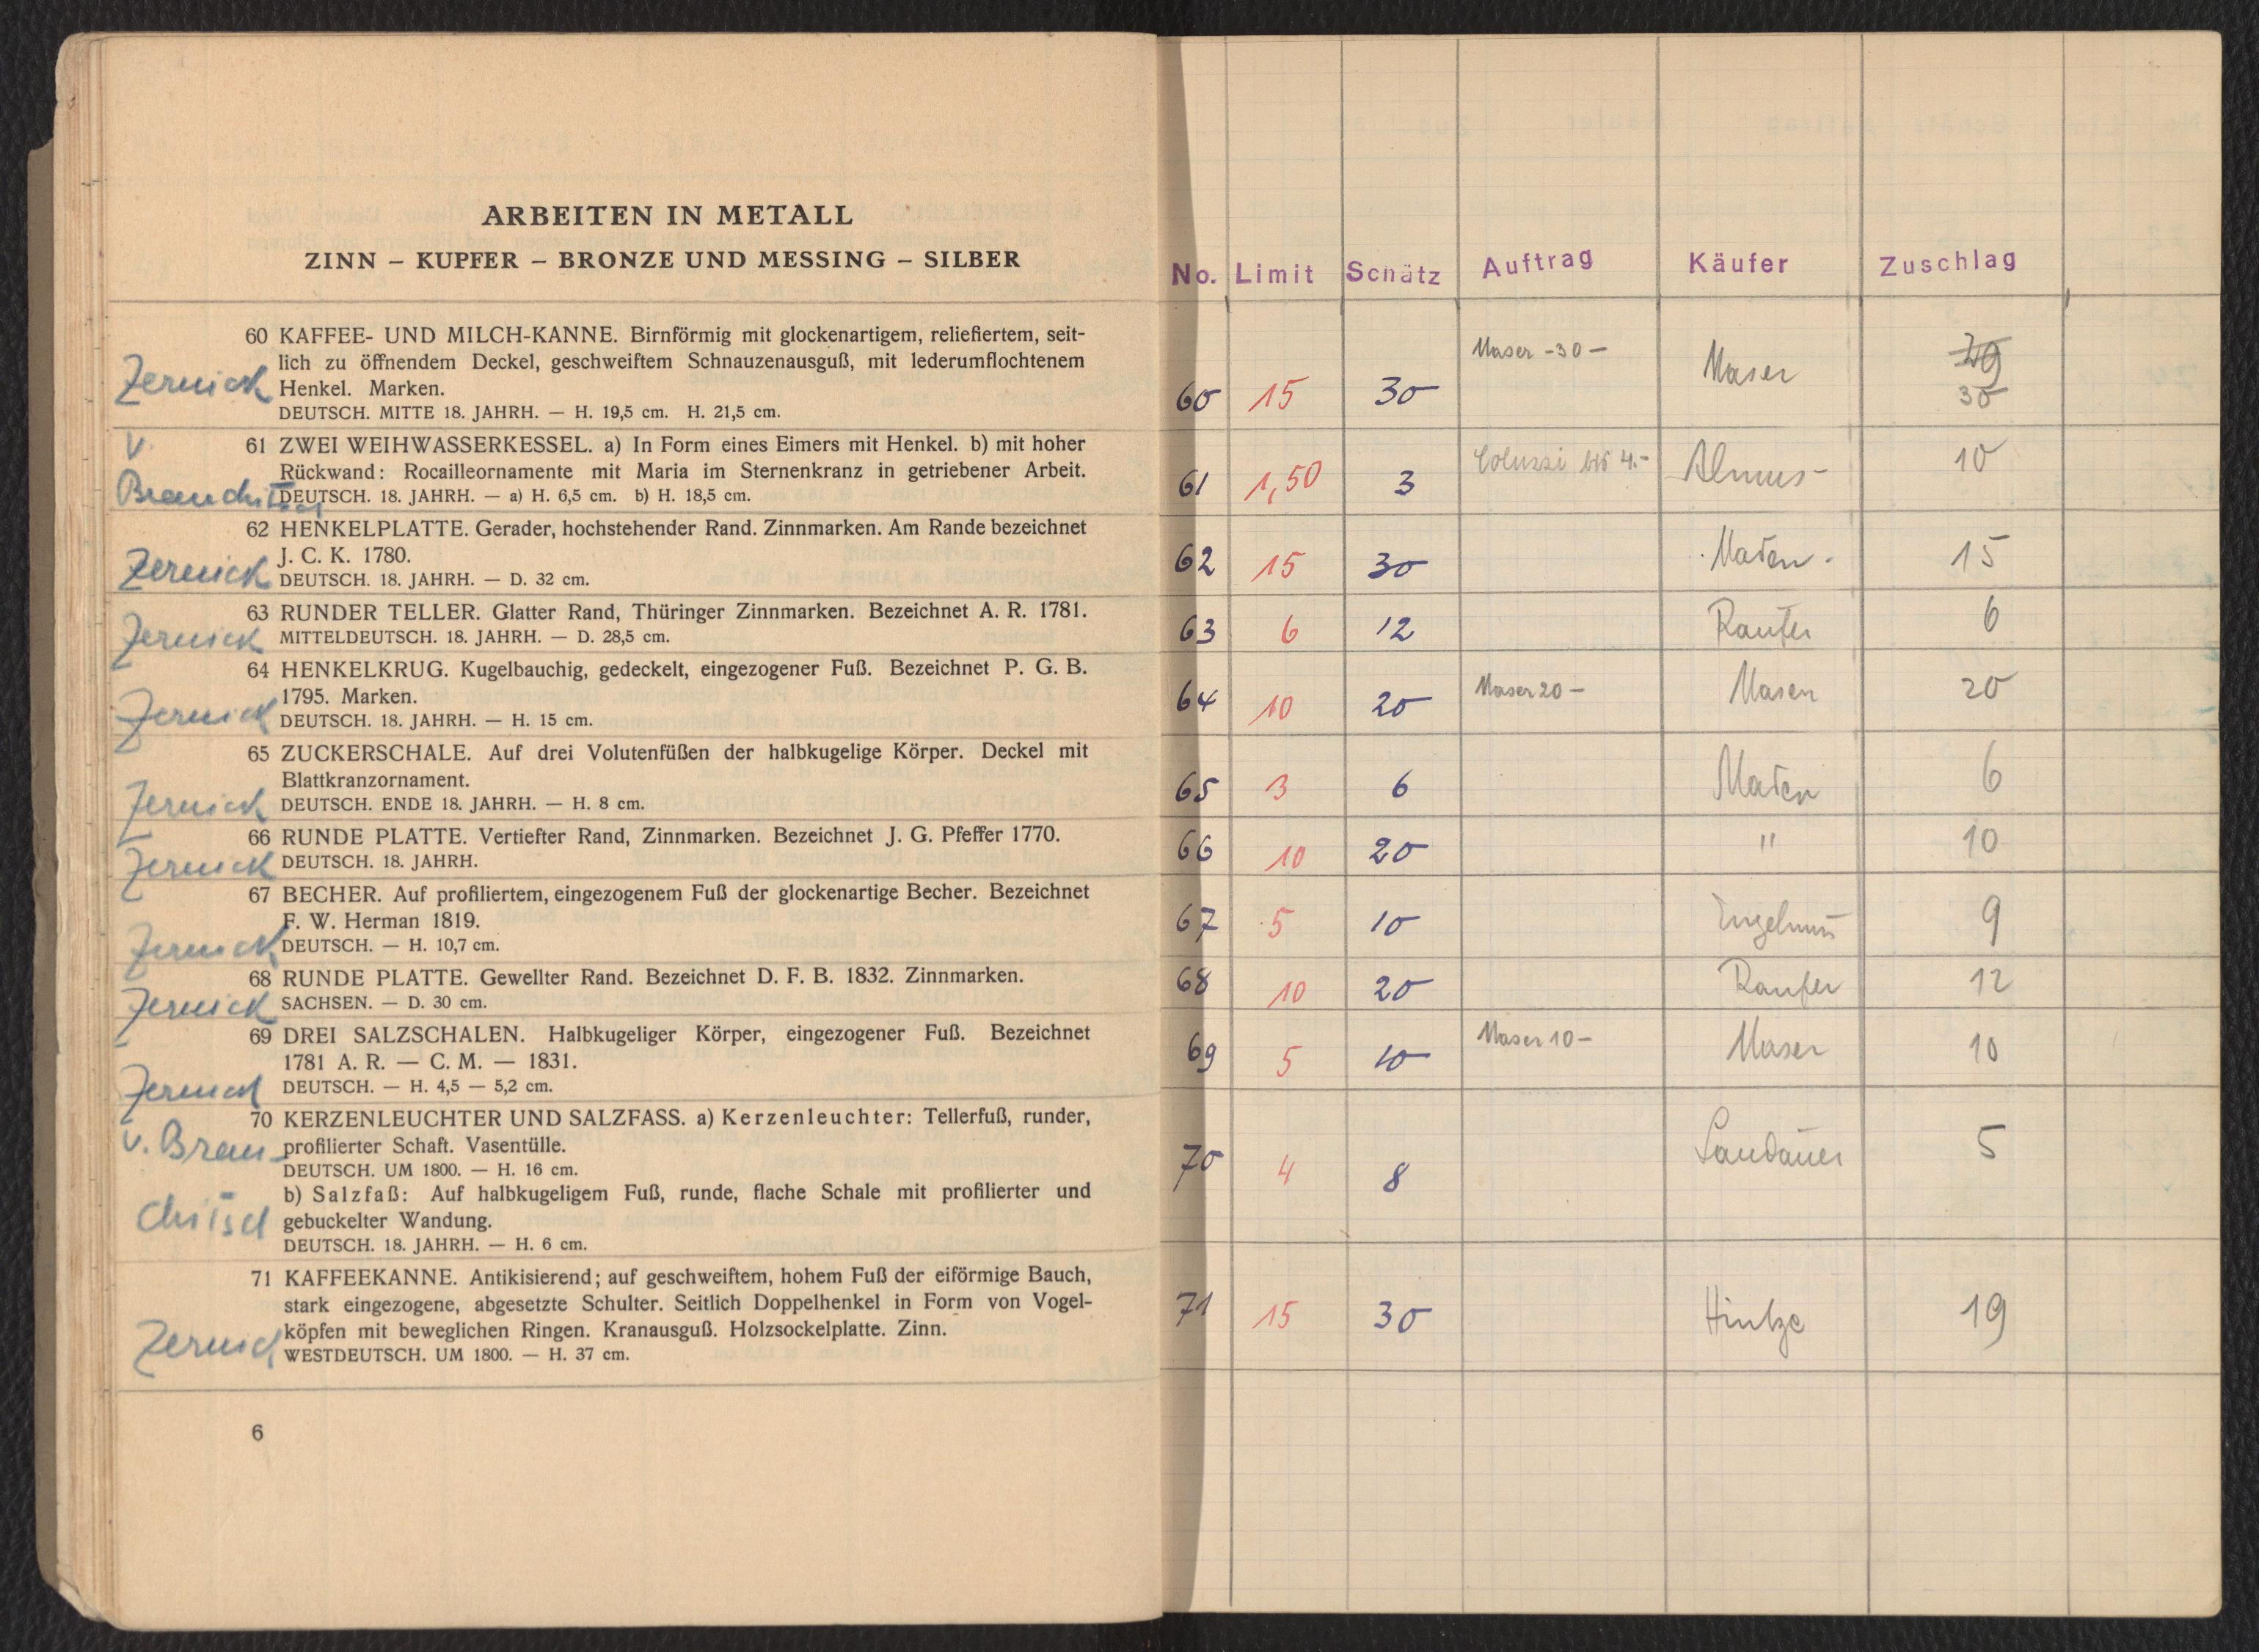 ARBEITEN IN METALL
ZINN – KUPFER – BRONZE UND MESSING – SILBER
60 KAFFEE- UND MILCH-KANNE. Birnförmig mit glockenartigem, reliefiertem, seit-
lich zu öffnendem Deckel, geschweiftem Schnauzenausguß, mit lederumflochtenem
Zernick Henkel. Marken.
DEUTSCH. MITTE 18. JAHRH. — H. 19,5 cm. H. 21,5 cm.
v. 61 ZWEI WEIHWASSERKESSEL. a) In Form eines Eimers mit Henkel. b) mit hoher
Rückwand: Rocailleornamente mit Maria im Sternenkranz in getriebener Arbeit.
DEUTSCH. 18. JAHRH. — a) H. 6,5 cm. b) H. 18,5 cm.
62 HENKELPLATTE. Gerader, hochstehender Rand. Zinnmarken. Am Rande bezeichnet
J. C. K. 1780.
Zernick DEUTSCH. 18. JAHRH. — D. 32 cm.
63 RUNDER TELLER. Glatter Rand, Thüringer Zinnmarken. Bezeichnet A. R. 1781.
Zernick MITTELDEUTSCH. 18. JAHRH. — D. 28,5 cm.
64 HENKELKRUG. Kugelbauchig, gedeckelt, eingezogener Fuß. Bezeichnet P. G. B.
1795. Marken.
Zernick DEUTSCH. 18. JAHRH. — H. 15 cm.
65 ZUCKERSCHALE. Auf drei Volutenfüßen der halbkugelige Körper. Deckel mit
Blattkranzornament.
Zernick DEUTSCH. ENDE 18. JAHRH. — H. 8 cm.
66 RUNDE PLATTE. Vertiefter Rand, Zinnmarken. Bezeichnet J. G. Pfeffer 1770.
Zernick DEUTSCH. 18. JAHRH.
67 BECHER. Auf profiliertem, eingezogenem Fuß der glockenartige Becher. Bezeichnet
F. W. Herman 1819.
Zernick DEUTSCH. — H. 10,7 cm.
68 RUNDE PLATTE. Gewellter Rand. Bezeichnet D. F. B. 1832. Zinnmarken.
Zernick SACHSEN. — D. 30 cm.
69 DREI SALZSCHALEN. Halbkugeliger Körper, eingezogener Fuß. Bezeichnet
1781 A. R. — C. M. — 1831.
Zernick DEUTSCH. — H. 4,5 — 5,2 cm.
70 KERZENLEUCHTER UND SALZFASS. a) Kerzenleuchter: Tellerfuß, runder,
v. Brau- profilierter Schaft. Vasentülle.
DEUTSCH. UM 1800. — H. 16 cm.
b) Salzfaß: Auf halbkugeligem Fuß, runde, flache Schale mit profilierter und
chitsch gebuckelter Wandung.
DEUTSCH. 18. JAHRH. — H. 6 cm.
71 KAFFEEKANNE. Antikisierend; auf geschweiftem, hohem Fuß der eiförmige Bauch,
stark eingezogene, abgesetzte Schulter. Seitlich Doppelhenkel in Form von Vogel-
köpfen mit beweglichen Ringen. Kranausguß. Holzsockelplatte. Zinn.
Zernick WESTDEUTSCH. UM 1800. — H. 37 cm.
6
No. Limit Schätz Auftrag Käufer Zuschlag
60 15 30 Maser -30- Maser 30
61 1,50 3 Coluzzi bis 4.- 10
62 15 30 15
63 6 12 6
64 10 20 Maser 20- Maser 20
65 3 6 6
66 10 20 " 10
67 5 10 Engelman 9
68 10 20 12
69 5 10 Maser 10- Maser 10
70 4 8 Landauer 5
71 15 30 Hintze 19